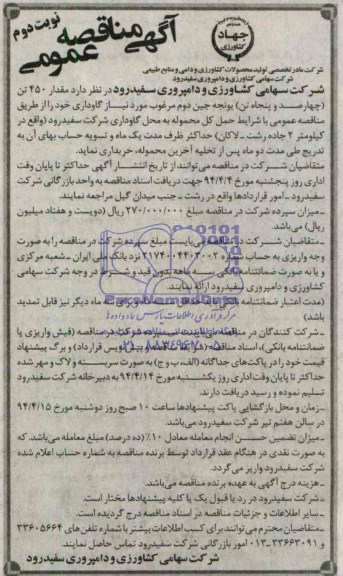 نوبت دوم
آگهی مناقصه عمومی
جهاد کشاورزی
شرکت مادر تخصصی تولید محصولات کشاورزی و دامی و منابع طبیعی
شرکت سهامی کشاورزی و دامپروری سفیدرود
شرکت سهامی کشاورزی و دامپروری سفیدرود در نظر دارد مقدار ۴۵۰ تن
(چهارصد و پنجاه تن) یونجه چین دوم مرغوب مورد نیاز گاوداری خود را از طریق
مناقصه عمومی با شرایط حمل کل محموله به محل گاوداری شرکت سفیدرود (واقع در
کیلومتر ۲ جاده رشت ـ لاکان) حداکثر ظرف مدت یک ماه و تسویه حساب بهای آن به
تدریج طی مدت دو ماه پس از تخلیه آخرین محموله، خریداری نماید.
متقاضیان شرکت در مناقصه می‌توانند از تاریخ انتشار آگهی حداکثر تا پایان وقت
اداری روز پنجشنبه مورخ ۹۴/۴/۴ جهت دریافت اسناد مناقصه به واحد بازرگانی شرکت
سفیدرود ـ امور قراردادها واقع در رشت ـ جنب میدان گیل مراجعه نمایند.
ـ میزان سپرده شرکت در مناقصه مبلغ ۲۷۰/۰۰۰/۰۰۰ ریال (دویست و هفتاد میلیون
ریال) می‌باشد.
ـ متقاضیان شرکت در مناقصه می‌بایست مبلغ سپرده شرکت در مناقصه را به صورت
وجه واریزی به حساب شماره نزد بانک ملی ایران ـ شعبه مرکزی
و یا به صورت ضمانتنامه بانکی سه ماهه بدون قید و شرط در وجه شرکت سهامی
کشاورزی و دامپروری سفیدرود ارائه نمایند.
(مدت اعتبار ضمانتنامه بانکی ماه دیگر نیز قابل تمدید
باشد)
ـ شرکت کنندگان در مناقصه سپرده شرکت در مناقصه (فیش واریزی یا
ضمانتنامه بانکی)، اسناد مناقصه پیش نویس قرارداد) و برگ پیشنهاد
قیمت خود را در پاکت‌های جداگانه (الف، ب و ج) به صورت سربسته و لاک و مهر شده
حداکثر تا پایان وقت اداری روز یکشنبه مورخ ۹۴/۴/۱۴ به دبیرخانه شرکت سفیدرود
تسلیم نموده و رسید دریافت دارند.
ـ زمان و محل بازگشایی پاکت پیشنهادها ساعت ۱۰ صبح روز دوشنبه مورخ ۹۴/۴/۱۵
در سالن هفتم تیر شرکت سفیدرود می‌باشد.
ـ میزان تضمین حسن انجام معامله معادل ۱۰٪ (ده درصد) مبلغ معامله می‌باشد. که
به صورت نقدی در هنگام عقد قرارداد توسط برنده مناقصه به شماره حساب اعلام شده
شرکت سفیدرود واریز می‌گردد.
ـ هزینه درج آگهی به عهده برنده مناقصه می‌باشد.
ـ شرکت سفیدرود در رد یا قبول یک یا کلیه پیشنهادها مختار است.
ـ سایر اطلاعات و جزئیات مناقصه در اسناد مناقصه درج گردیده است.
ـ متقاضیان محترم می‌توانند برای کسب اطلاعات بیشتر با شماره تلفن‌های ۳۳۶۰۵۶۶۴
و ۳۳۶۶۳۰۹۱-۰۱۳ امور بازرگانی شرکت سفیدرود تماس حاصل نمایند.
شرکت سهامی کشاورزی و دامپروری سفیدرود